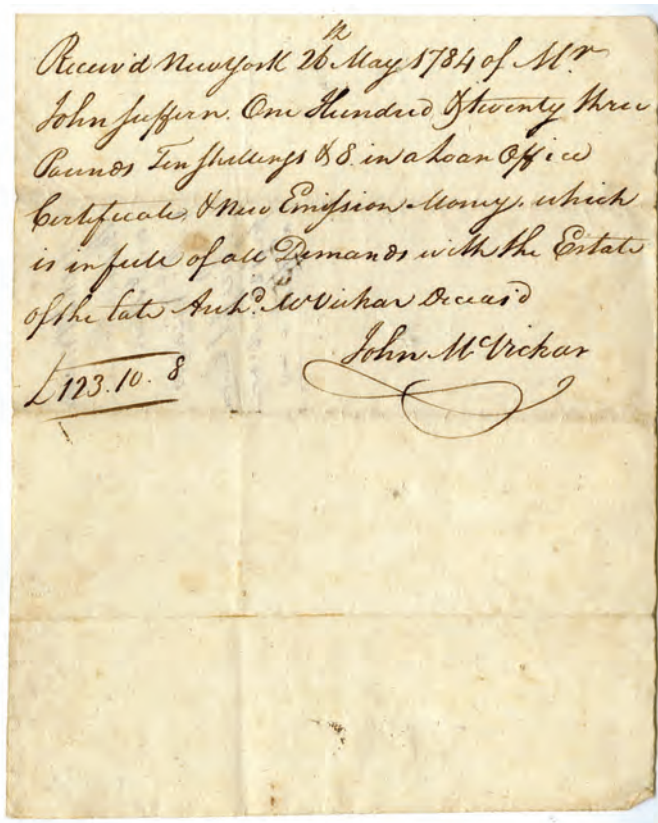 12
Receiv'd New York 26 May 1784 of Mr
John Suffern. One Hundred & twenty three
Pounds Ten Shillings & 8. in a Loan Office
Certificate, & New Emission Money. which
is in full of all Demands with the Estate
of the late Archd. McVickar Deceas'd
John McVickar
£123.10.8